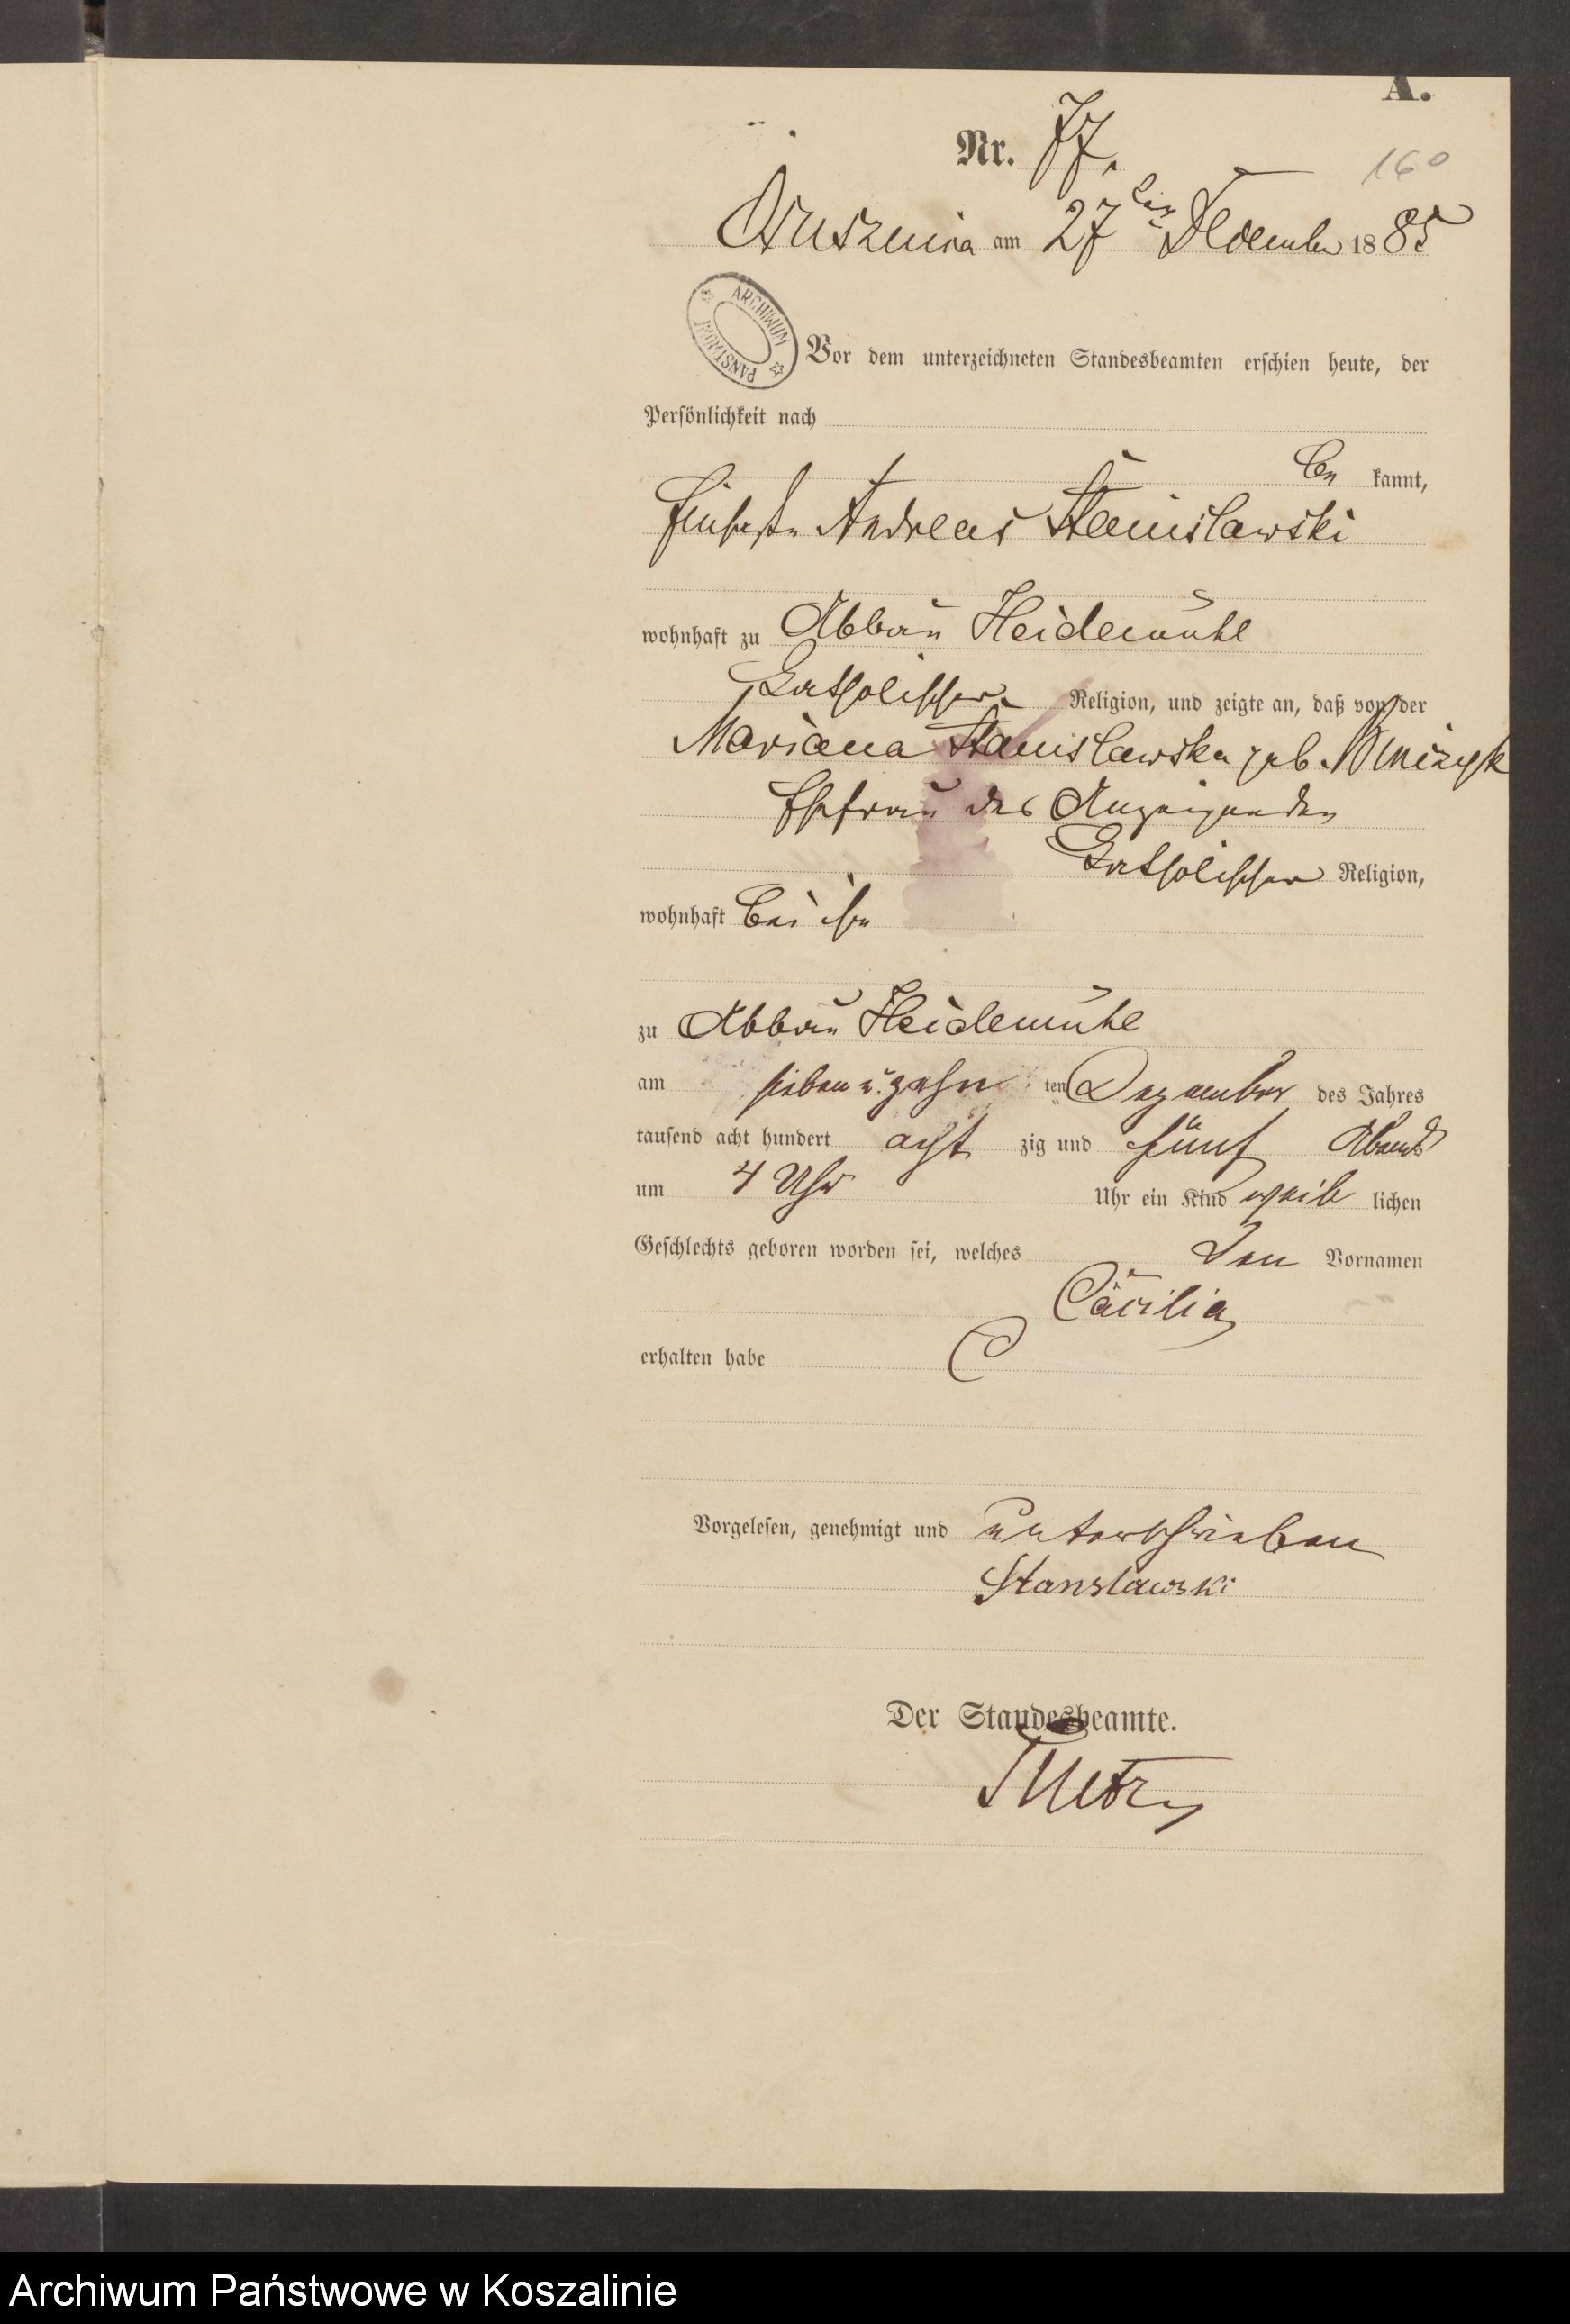 A.
Nr. 77.
160
Osusznica am 27ten Dezember 1885
ARCHIWUM PAŃSTWOWE
Vor dem unterzeichneten Standesbeamten erschien heute, der
Persönlichkeit nach
be kannt,
Andreas Stanislawski
wohnhaft zu Abbau Heidemühl
Katholischer Religion, und zeigte an, daß von der
Mariana Stanislawska geb.
Ehefrau des Anzeigenden
Katholischer Religion,
wohnhaft bei ihm
zu Abbau Heidemühl
am sieben u. zehn ten Dezember des Jahres
tausend acht hundert acht zig und fünf Abends
um 4 Uhr Uhr ein Kind weib lichen
Geschlechts geboren worden sei, welches den Vornamen
Cäcilia
erhalten habe
Vorgelesen, genehmigt und unterschrieben
Stanslawski
Der Standesbeamte.
Archiwum Państwowe w Koszalinie